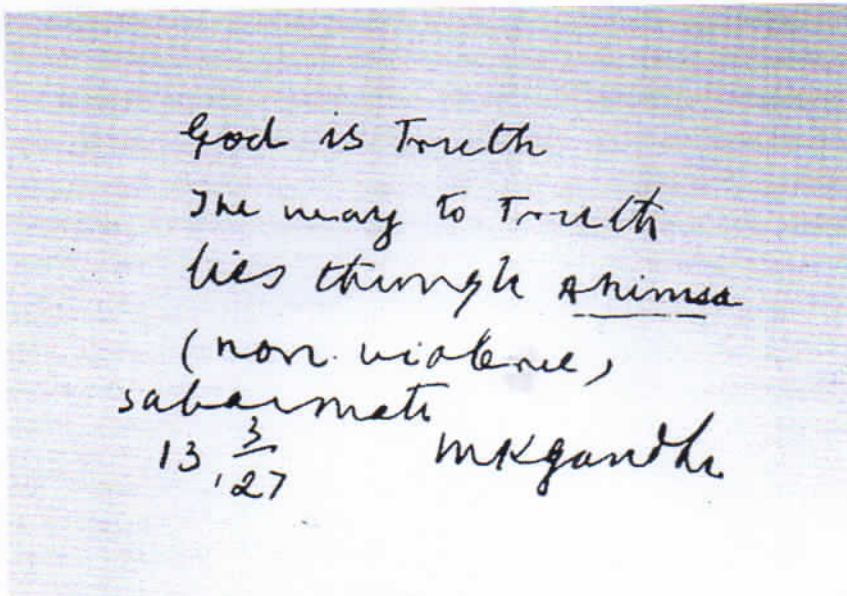 God is Truth
The way to Truth
lies through Ahimsa
(non-violence)
Sabarmati
13.3.'27 MKGandhi